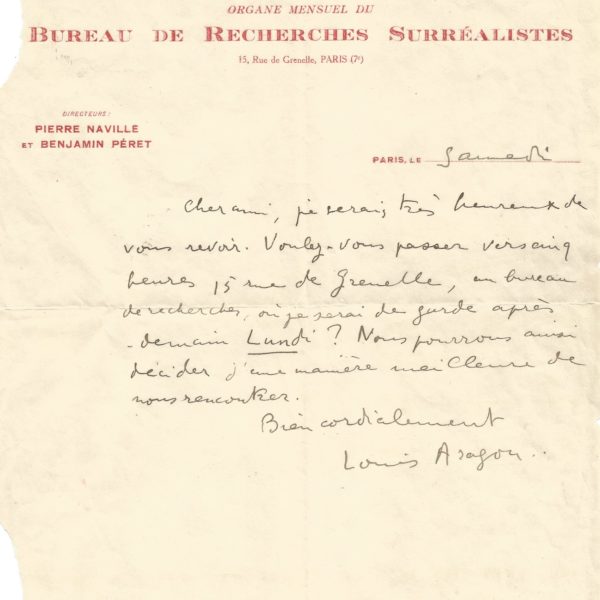 ORGANE MENSUEL DU
BUREAU DE RECHERCHES SURRÉALISTES
15, Rue de Grenelle, PARIS (7e)
DIRECTEURS :
PIERRE NAVILLE
ET BENJAMIN PÉRET
PARIS, LE Samedi
Cher ami, je serais très heureux de
vous revoir. Voulez-vous passer vers cinq
heures 15 rue de Grenelle, au bureau
de recherches, où je serai de garde après
-demain Lundi ? Nous pourrons ainsi
décider d'une manière meilleure de
nous rencontrer.
Bien cordialement
Louis Aragon..